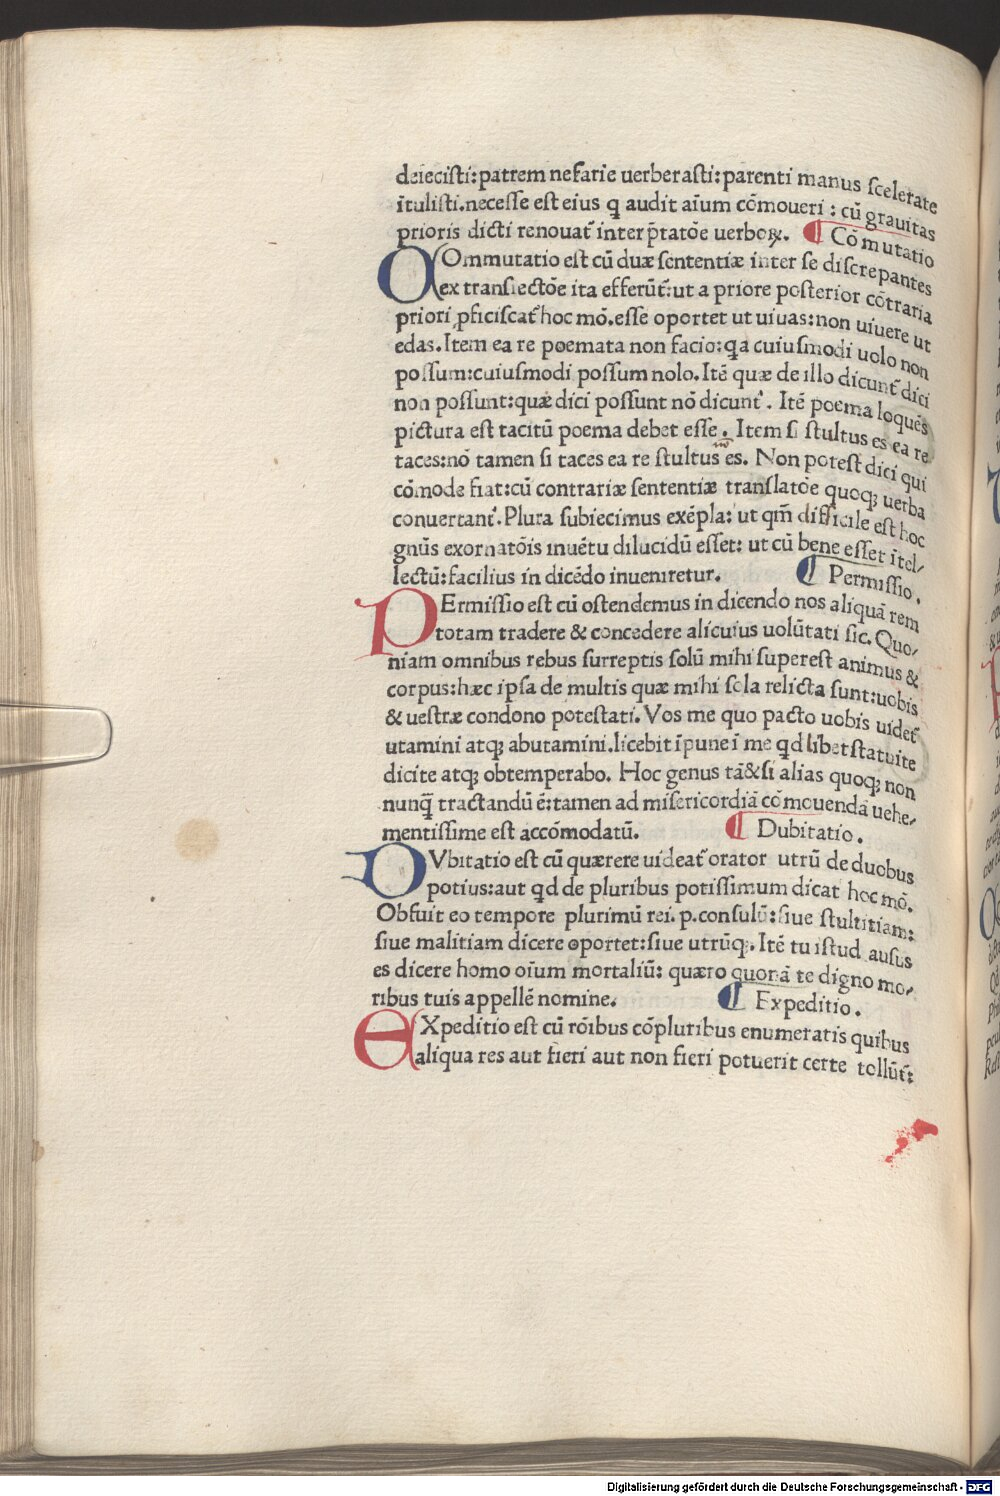 deiecisti:patrem nefarie uerberasti:parenti manus scelerate
ītulisti.necesse est eius q audit aīum cōmoueri : cū grauitas
prioris dicti renouat᷑ inter p̄tatōe uerboꝝ. ¶ Cōmutatio
COmmutatio est cū duæ sententiæ inter se discrepantes
ex transiectōe ita efferūt᷑:ut a priore posterior cōtraria
priori ꝓficiscat᷑ hoc mō.esse oportet ut uiuas:non uiuere ut
edas.Item ea re poemata non facio:qa cuiusmodi uolo non
possum:cuiusmodi possum nolo.Itē quæ de illo dicunt᷑ dici
non possunt:quæ dici possunt nō dicunt᷑. Itē poema loquēs
pictura est tacitū poema debet esse. Item si stultus es ea re
taces:nō tamen si taces ea re stultus es. Non potest dici qui
cōmode fiat:cū contrariæ sententiæ translatōe quoqꝫ uerba
conuertant᷑.Plura subiecimus exēpla: ut qm̄ difficile est hoc
gnūs exornatōis inuētu dilucidū esset: ut cū bene esset ītel⸗
lectū:facilius in dicēdo inueniretur. ¶ Permissio.
PErmissio est cū ostendemus in dicendo nos aliquā rem
totam tradere & concedere alicuius uolūtati sic. Quo⸗
niam omnibus rebus surreptis solū mihi superest animus &
corpus:hæc ipsa de multis quæ mihi sola relicta sunt:uobis
& uestræ condono potestati. Vos me quo pacto uobis uidet᷑
utamini atqꝫ abutamini.licebit īpune ī me qd libet statuite
dicite atqꝫ obtemperabo. Hoc genus tā&si alias quoqꝫ non
nunq̄ tractandū ē:tamen ad misericordiā cōmouendā uehe⸗
mentissime est accōmodatū. ¶ Dubitatio.
DVbitatio est cū quærere uideat᷑ orator utrū de duobus
potius:aut qd de pluribus potissimum dicat hoc mō.
Obfuit eo tempore plurimū rei. p.consulū:siue stultitiam:
siue malitiam dicere oportet:siue utrūqꝫ. Itē tu istud ausus
es dicere homo oīum mortaliū: quæro quonā te digno mo⸗
ribus tuis appellē nomine. ¶ Expeditio.
EXpeditio est cū rōibus cōpluribus enumeratis quibus
aliqua res aut fieri aut non fieri potuerit certe tollūt᷑:
Digitalisierung gefördert durch die Deutsche Forschungsgemeinschaft - DFG